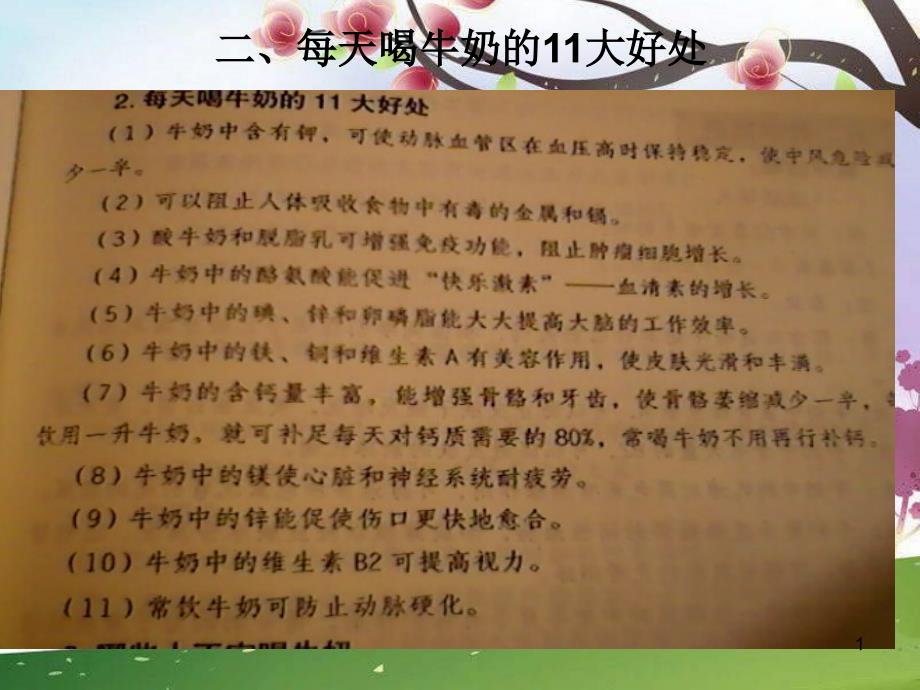 二、每天喝牛奶的11大好处
2. 每天喝牛奶的 11 大好处
（1）牛奶中含有钾，可使动脉血管区在血压高时保持稳定，使中风危险减
少一半。
（2）可以阻止人体吸收食物中有毒的金属和镉。
（3）酸牛奶和脱脂乳可增强免疫功能，阻止肿瘤细胞增长。
（4）牛奶中的酪氨酸能促进“快乐激素”——血清素的增长。
（5）牛奶中的碘、锌和卵磷脂能大大提高大脑的工作效率。
（6）牛奶中的铁、铜和维生素 A 有美容作用，使皮肤光滑和丰满。
（7）牛奶的含钙量丰富，能增强骨骼和牙齿，使骨骼萎缩减少一半，每
饮用一升牛奶，就可补足每天对钙质需要的 80%，常喝牛奶不用再行补钙。
（8）牛奶中的镁使心脏和神经系统耐疲劳。
（9）牛奶中的锌能促使伤口更快地愈合。
（10）牛奶中的维生素 B2 可提高视力。
（11）常饮牛奶可防止动脉硬化。
哪些人不宜喝牛奶
1